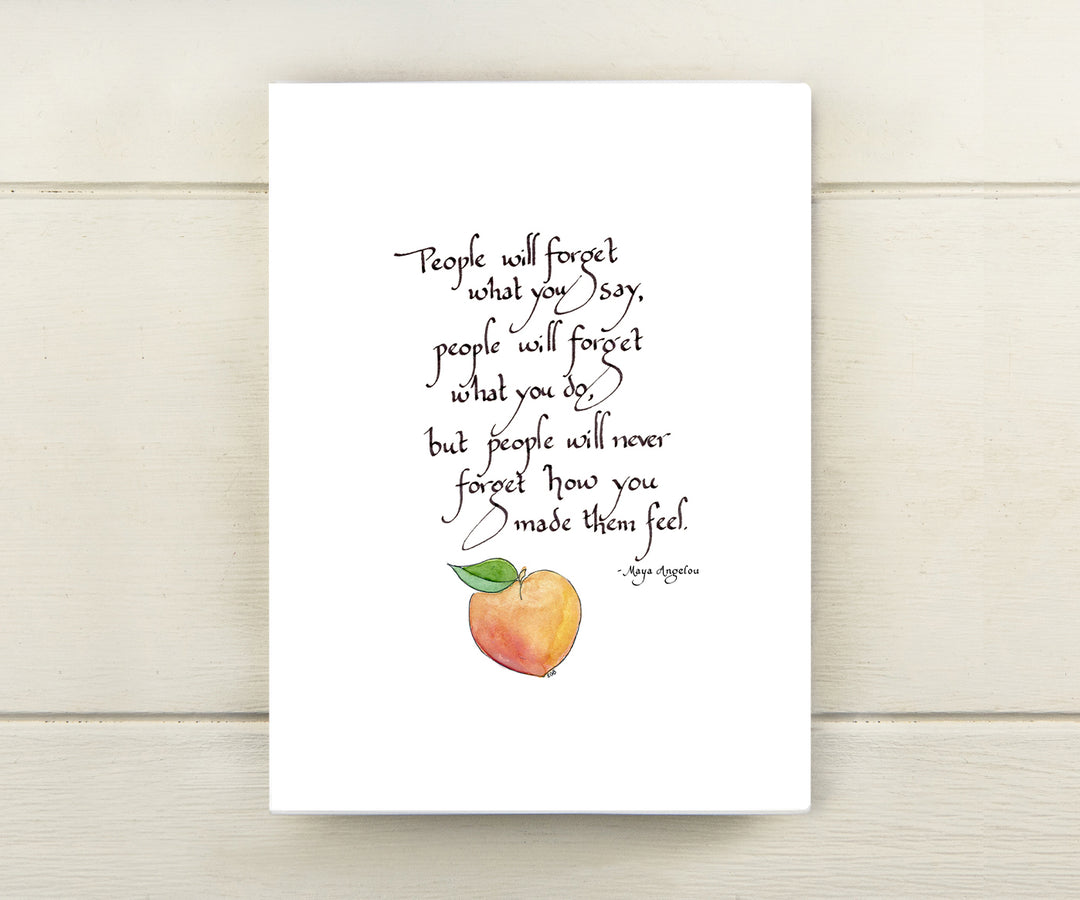 People will forget
what you say,
people will forget
what you do,
but people will never
forget how you
made them feel.
- Maya Angelou